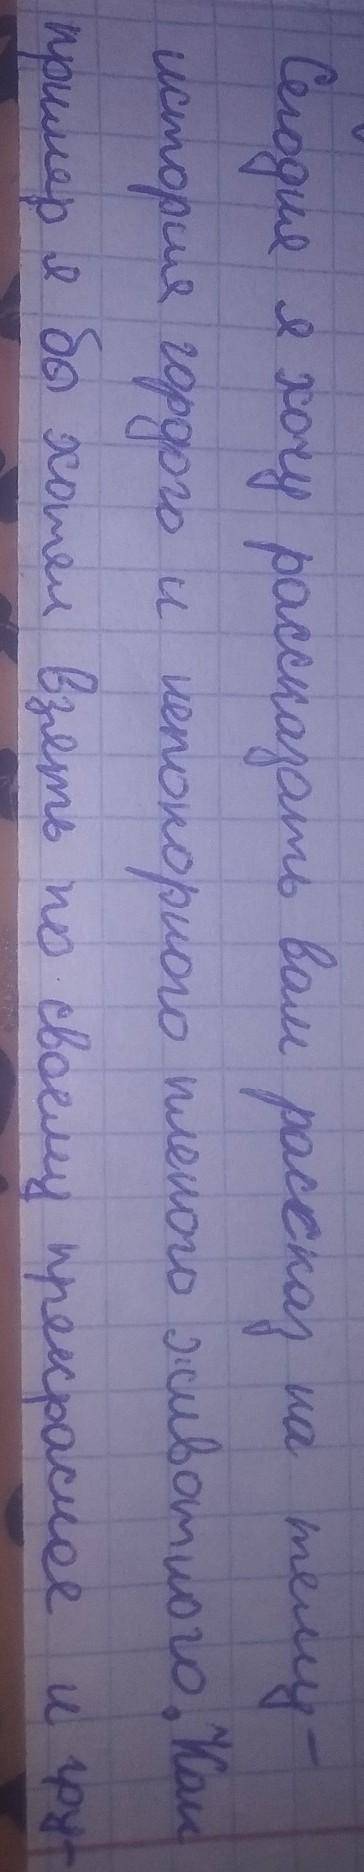 Сегодня я хочу рассказать вам рассказ на тему-
история гордого и непокорного пленого животного. Как
пример я бы хотел взять по своему прекрасное и гру-